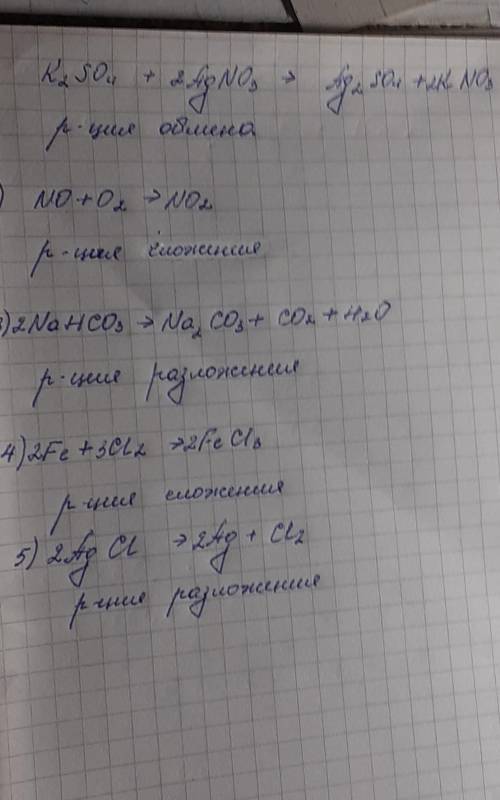 K₂SO₄ + 2AgNO₃ → Ag₂SO₄ + 2KNO₃
р-ция обмена
) NO + O₂ → NO₂
р-ция сложения
3) 2NaHCO₃ → Na₂CO₃ + CO₂ + H₂O
р-ция разложения
4) 2Fe + 3Cl₂ → 2FeCl₃
р-ция сложения
5) 2AgCl → 2Ag + Cl₂
р-ция разложения